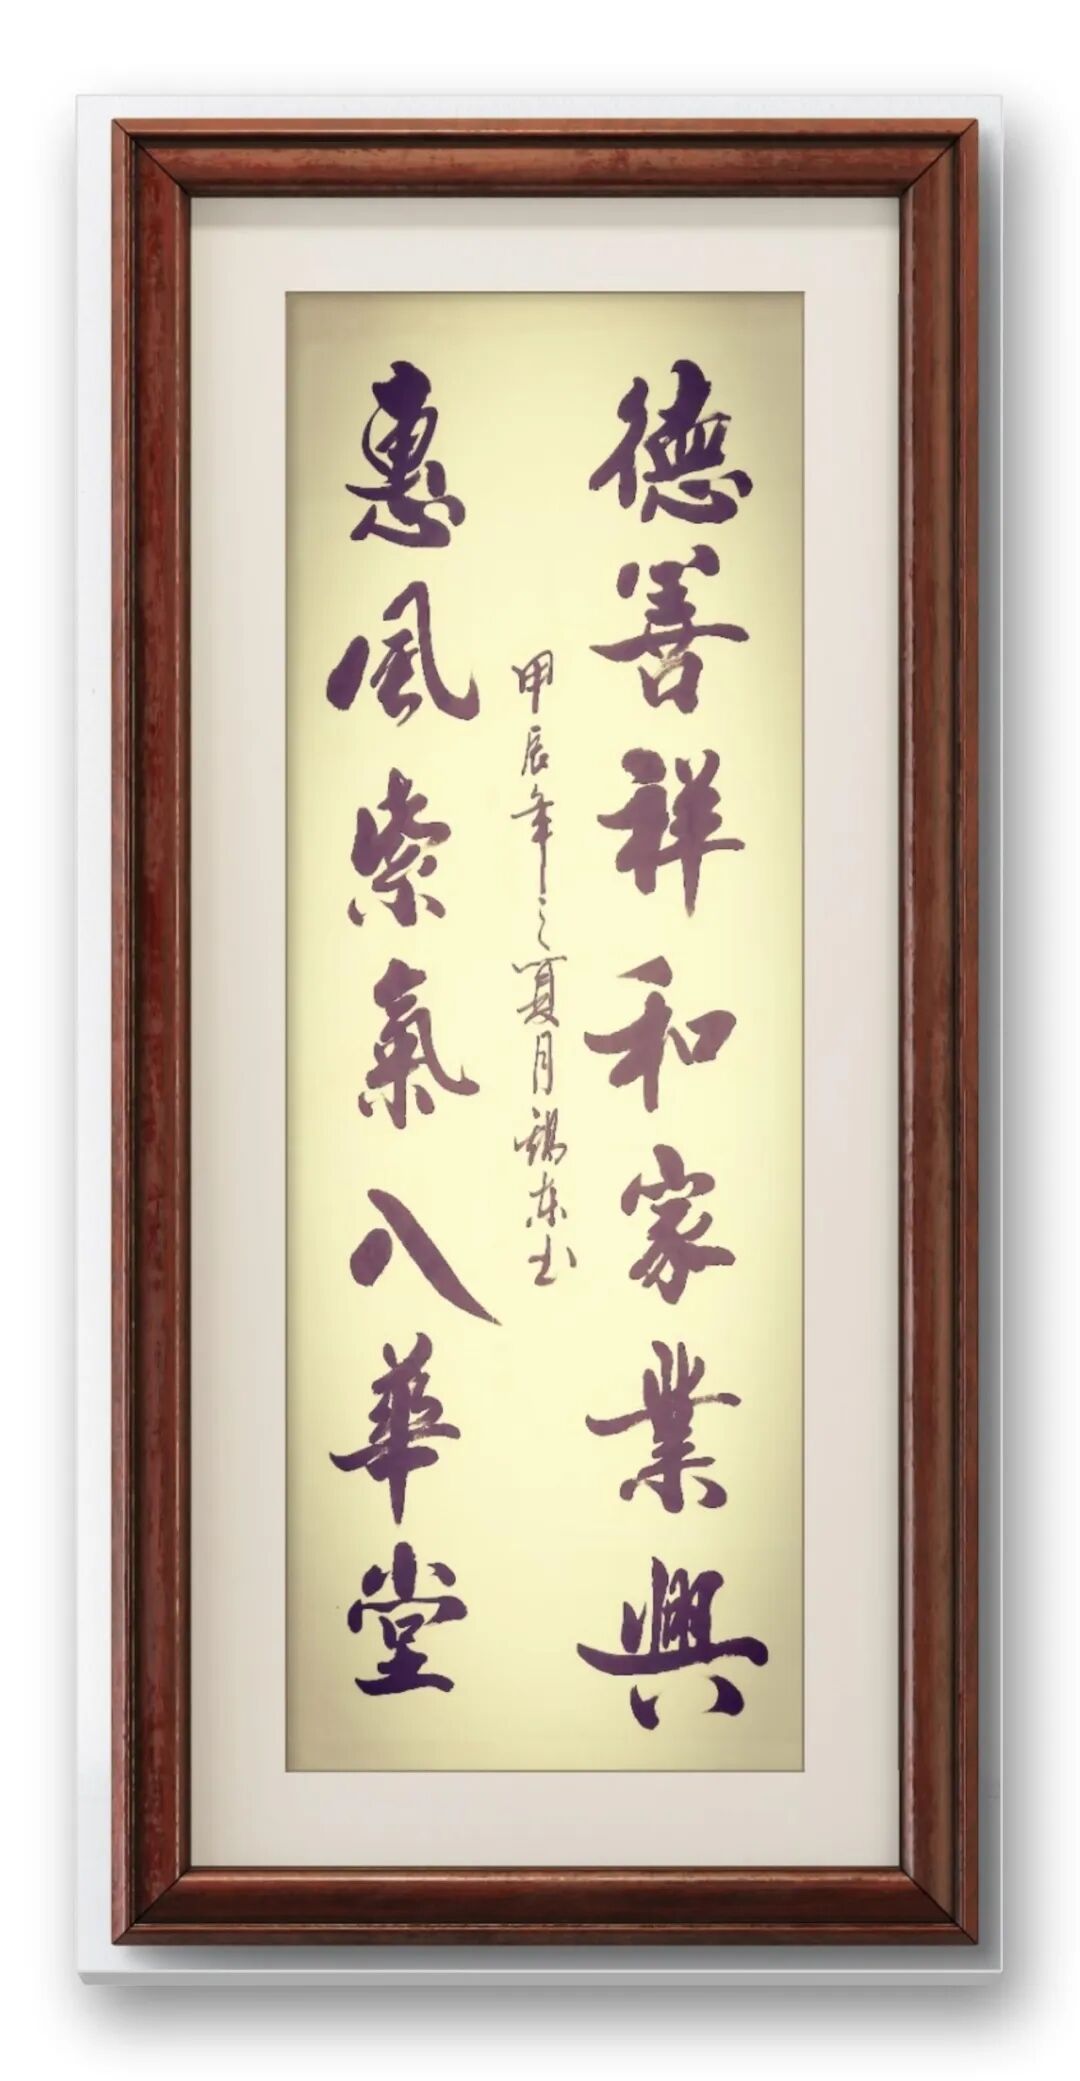 德善祥和家業興
惠風紫氣入華堂
甲辰年之夏月錫东书